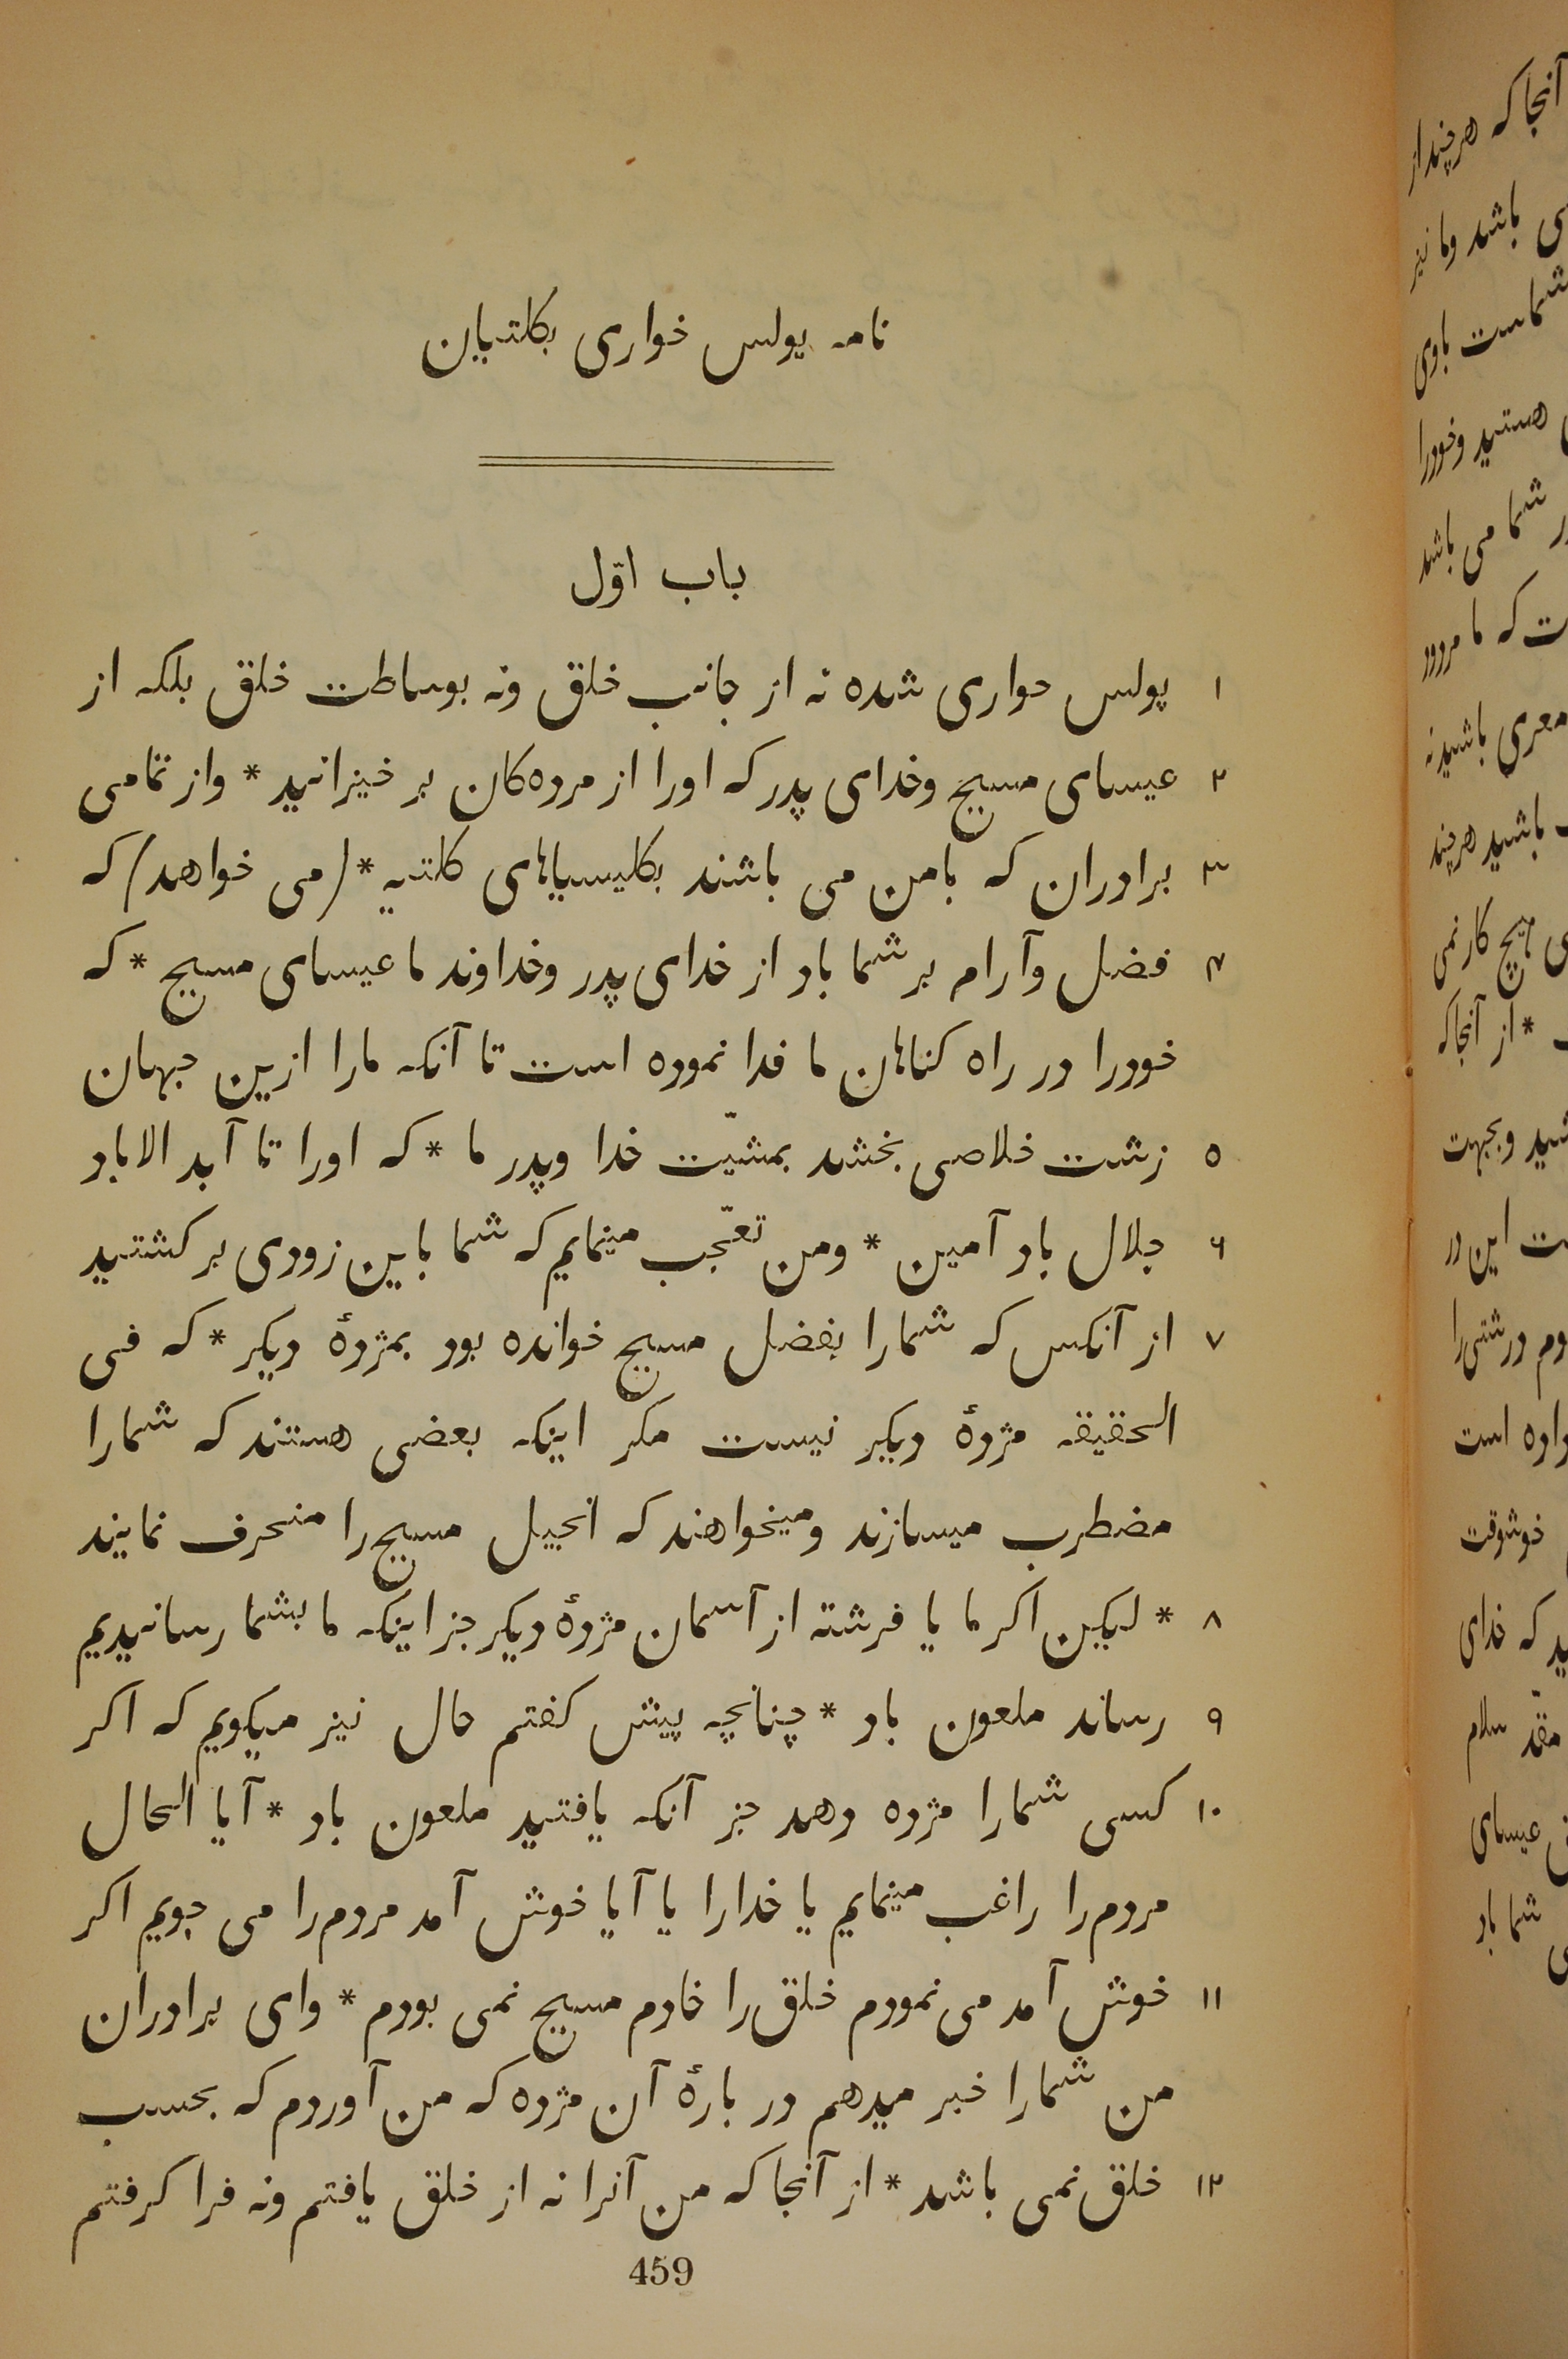 نامه پولس خواری بکلتیان
باب اوّل
۱ پولس حواری شده نه از جانب خلق ونه بوساطت خلق بلکه از
۲ عیسای مسیح وخدای پدر که اورا از مرده‌کان بر خیزانید * واز تمامی
۳ برادران که بامن می باشند بکلیسیاهای کلتیه * (می خواهد) که
۴ فضل وآرام بر شما باد از خدای پدر وخداوند ما عیسای مسیح * که
خودرا در راه کناهان ما فدا نموده است تا آنکه مارا ازین جهان
۵ زشت خلاصی بخشد بمشیّت خدا وپدر ما * که اورا تا آبد الاباد
۶ جلال باد آمین * ومن تعجّب مینمایم که شما باین زودی بر کشتید
۷ از آنکس که شمارا بفضل مسیح خوانده بود بمژدهٔ دیکر * که فی
الحقیقه مژدهٔ دیکر نیست مکر اینکه بعضی هستند که شمارا
مضطرب میسازند ومیخواهند که انجیل مسیح را منحرف نمایند
۸ * لیکن اکر ما یا فرشته از آسمان مژدهٔ دیکر جز اینکه ما بشما رسانیدیم
۹ رساند ملعون باد * چنانچه پیش کفتم حال نیز میکویم که اکر
۱۰ کسی شمارا مژده دهد جز آنکه یافتید ملعون باد * آیا الحال
مردم را راغب مینمایم یا خدارا یا آیا خوش آمد مردم را می جویم اکر
۱۱ خوش آمد می نمودم خلق را خادم مسیح نمی بودم * وای برادران
من شمارا خبر میدهم در بارهٔ آن مژده که من آوردم که بحسب
۱۲ خلق نمی باشد * از آنجا که من آنرا نه از خلق یافتم ونه فرا کرفتم
459
آنجا که هر چند از
باشد وما نیز
شماست باوی
هستید وخودرا
شما می باشد
که ما مردود
معری باشید نه
باشید هر چند
هیچ کار نمی
* از آنجا که
وبجهت
این در
درشتی را
داده است
خوشوقت
که خدای
سلام
عیسای
شما باد